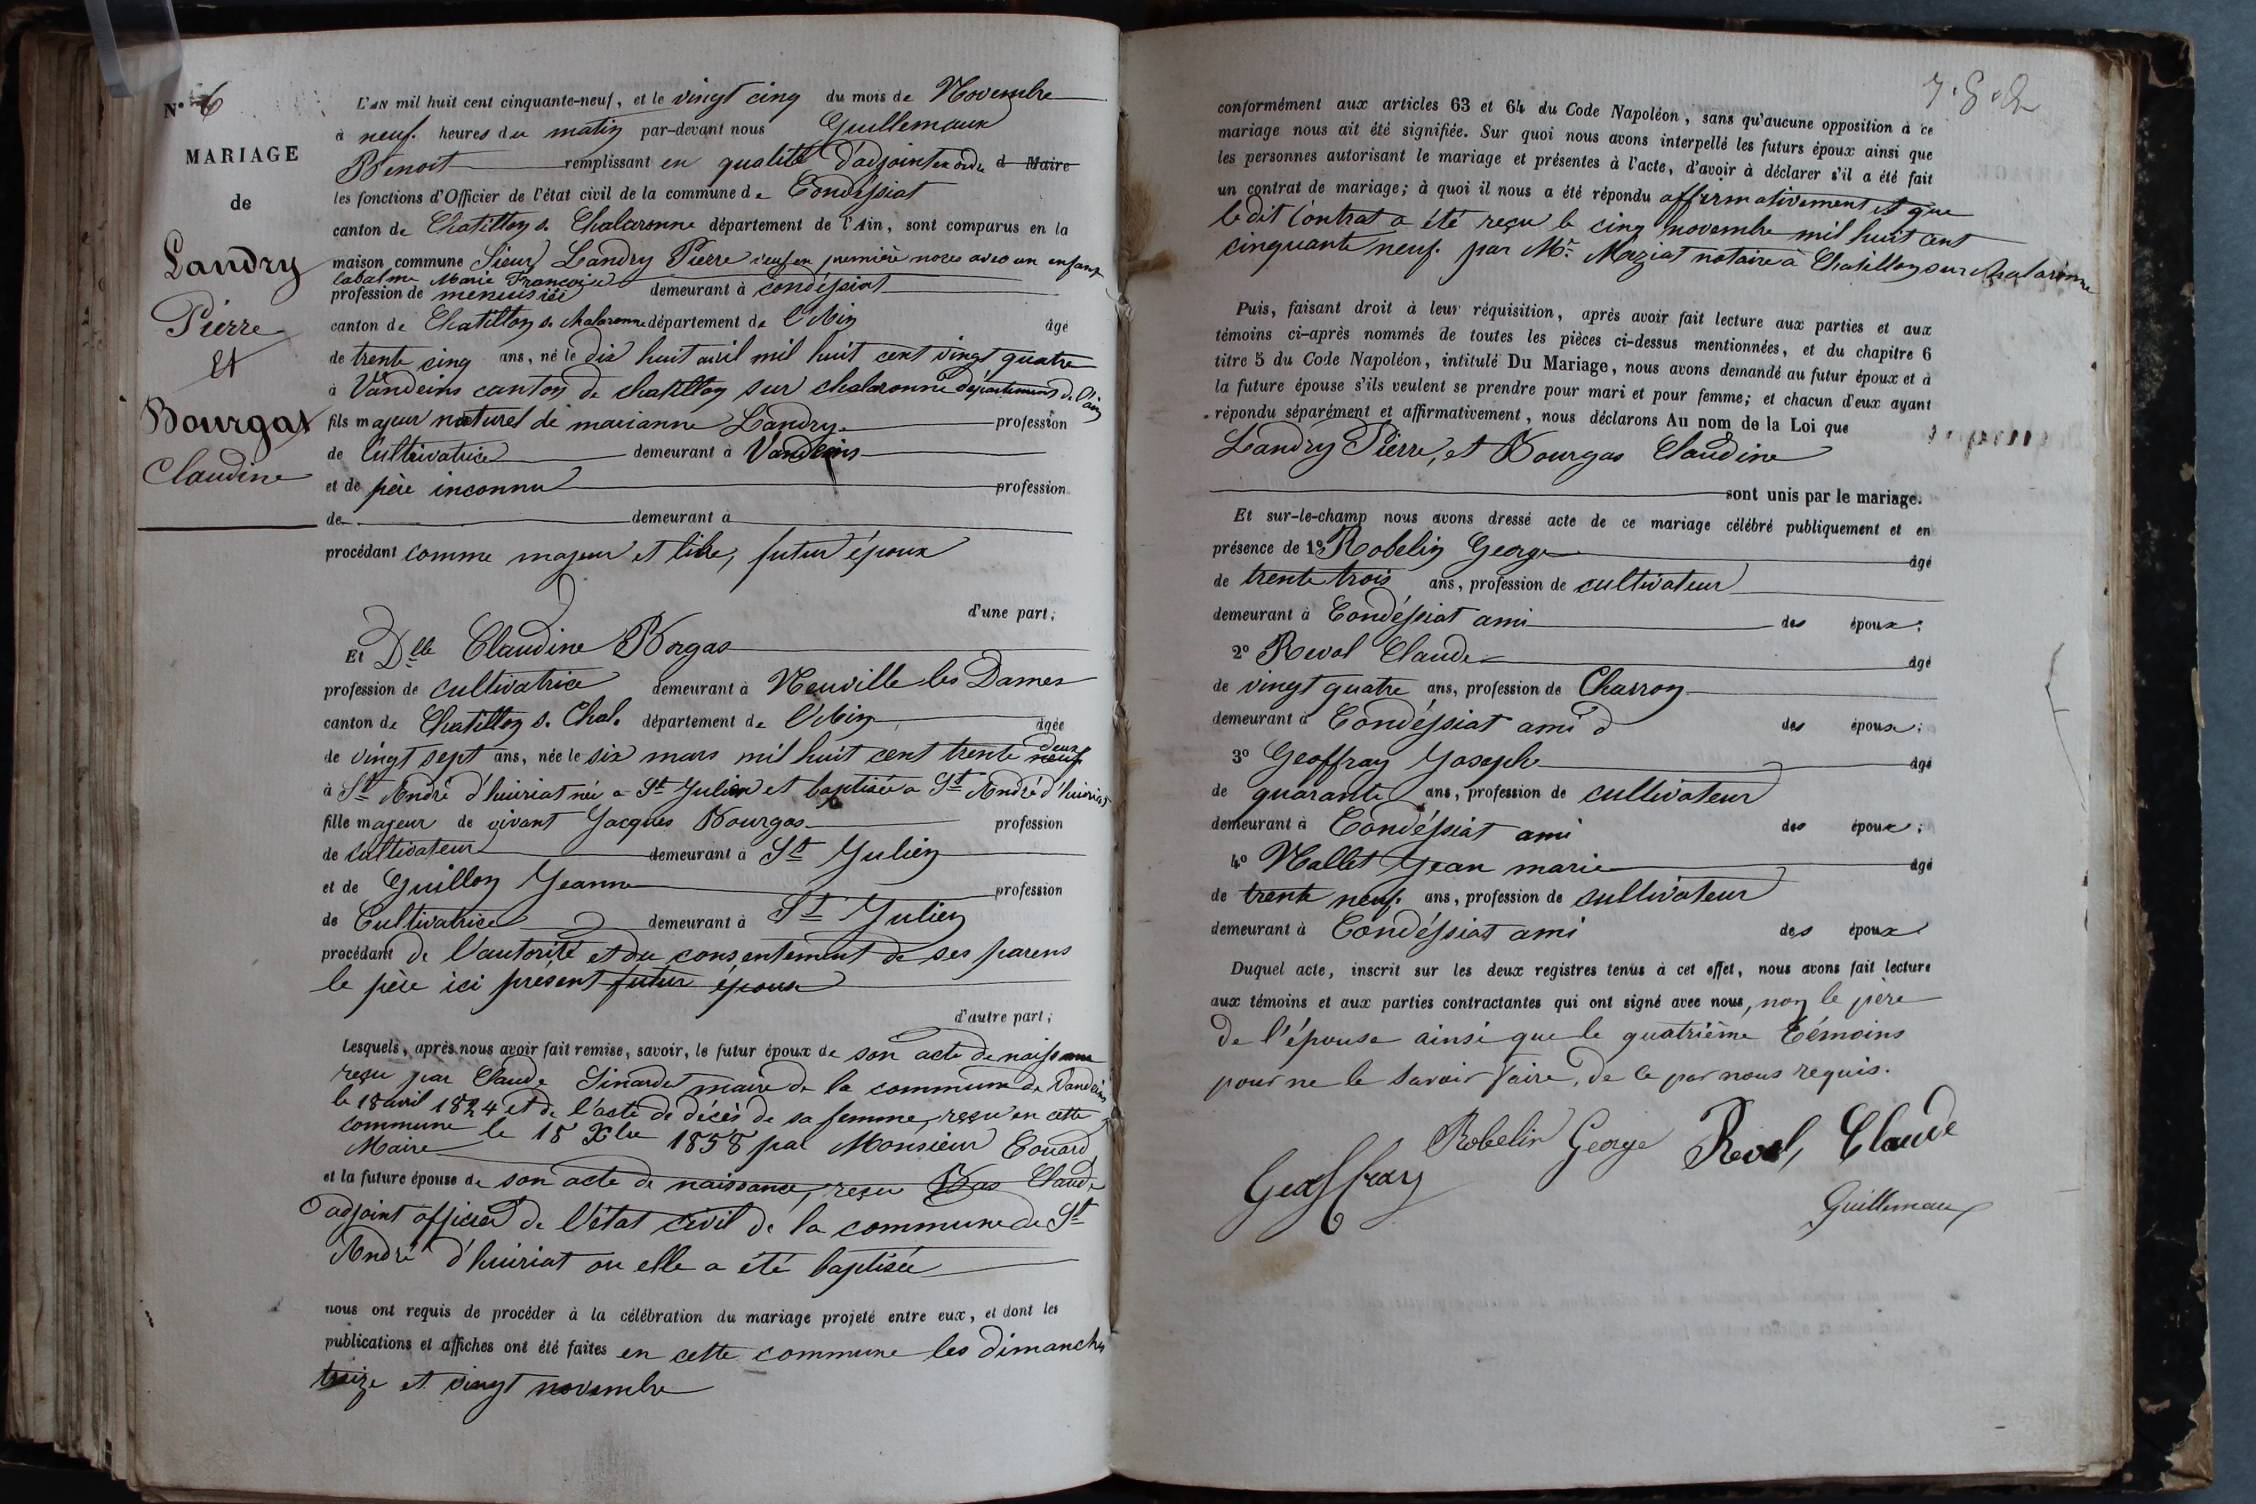 N° 6
MARIAGE
de
Landry
Pierre
et
Bourgas
Claudine
L'AN mil huit cent cinquante-neuf, et le vingt cinq du mois de Novembre
à neuf heures du matin par-devant nous Guillemaux
Benoit remplissant en qualité d'adjoint d Maire
les fonctions d'Officier de l'état civil de la commune de Condéssiat
canton de Chatillon s. Chalaronne département de l'Ain, sont comparus en la
maison commune Sieur Landry Pierre veuf en première noces avec un enfant
labalme Marie Françoise
profession de menuisier demeurant à condéssiat
canton de Chatillon s. chalaronne département de l'Ain âgé
de trente cinq ans, né le dix huit avril mil huit cent vingt quatre
à Vandeins canton de chatillon sur chalaronne département de l'ain
fils majeur naturel de marianne Landry profession
de Cultivatrice demeurant à Vandeins
et de père inconnu profession
de demeurant à
procédant comme majeur et libre, futur époux
d'une part;
Et Dlle Claudine Borgas
profession de cultivatrice demeurant à Neuville les Dames
canton de Chatillon s. Chal. département de l'Ain âgée
de vingt sept ans, née le six mars mil huit cent trente deux neuf
à St André d'huiriat née a St Julien et baptisée a St André d'huiriat
fille majeur de vivant Jacques Bourgas profession
de cultivateur demeurant à St Julien
et de Guillon Jeanne profession
de Cultivatrice demeurant à St Julien
procédant de l'autorité et du consentement de ses parens
le père ici présent futur épouse
d'autre part;
Lesquels, après nous avoir fait remise, savoir, le futur époux de son acte de naissance
reçu par Claude Sinardet maire de la commune de Vandeins
le 18 avril 1824 et de l'acte de décès de sa femme, reçu en cette
commune le 15 Xbre 1858 par Monsieur Evrard
Maire
et la future épouse de son acte de naissance, reçu Bas Claude
adjoint officier de l'état civil de la commune de St
André d'huiriat ou elle a été baptisée
nous ont requis de procéder à la célébration du mariage projeté entre eux, et dont les
publications et affiches ont été faites en cette commune les dimanches
treize et vingt novembre
conformément aux articles 63 et 64 du Code Napoléon, sans qu'aucune opposition à ce
mariage nous ait été signifiée. Sur quoi nous avons interpellé les futurs époux ainsi que
les personnes autorisant le mariage et présentes à l'acte, d'avoir à déclarer s'il a été fait
un contrat de mariage; à quoi il nous a été répondu affirmativement et que
le dit Contrat a été reçu le cinq novembre mil huit cent
cinquante neuf. par Mr. Moziat notaire à Chatillon sur chalaronne
Puis, faisant droit à leur réquisition, après avoir fait lecture aux parties et aux
témoins ci-après nommés de toutes les pièces ci-dessus mentionnées, et du chapitre 6
titre 5 du Code Napoléon, intitulé Du Mariage, nous avons demandé au futur époux et à
la future épouse s'ils veulent se prendre pour mari et pour femme; et chacun d'eux ayant
répondu séparément et affirmativement, nous déclarons Au nom de la Loi que
Landry Pierre, et Bourgas Claudine
sont unis par le mariage.
Et sur-le-champ nous avons dressé acte de ce mariage célébré publiquement et en
présence de 1° Robelin George âgé
de trente trois ans, profession de cultivateur
demeurant à Condéssiat ami des époux;
2° Revol Claude âgé
de vingt quatre ans, profession de Charron
demeurant à Condéssiat ami d des époux;
3° Geoffray Joseph âgé
de quarante ans, profession de cultivateur
demeurant à Condéssiat ami des époux;
4° Nallet Jean marie âgé
de trente neuf. ans, profession de cultivateur
demeurant à Condéssiat ami des époux
Duquel acte, inscrit sur les deux registres tenus à cet effet, nous avons fait lecture
aux témoins et aux parties contractantes qui ont signé avec nous, non le père
de l'épouse ainsi que le quatrième témoins
pour ne le savoir faire, de ce par nous requis.
Robelin George Revol, Claude
Geoffray
Guillemaux